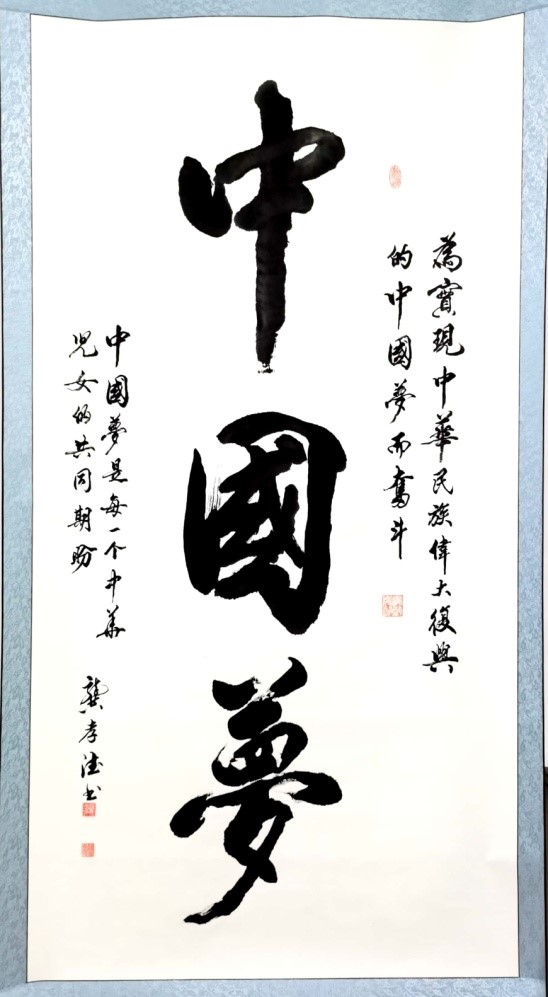 為寳現中華民族偉大復興
的中國夢而奮斗
中國夢
中國夢是每一个中華
兒女的共同期盼
龔孝德书